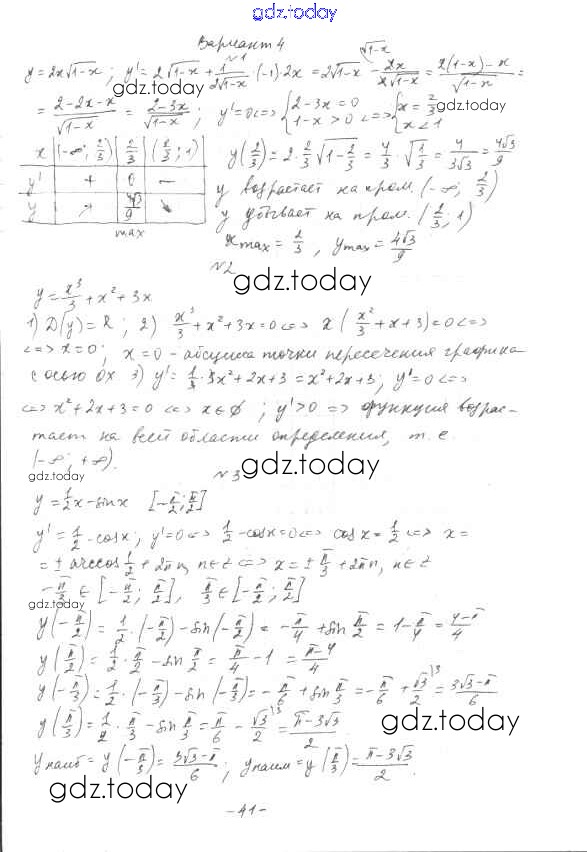 gdz.today
Вариант 4
№1
y=2x√(1-x); y'=2√(1-x)+1/(2√(1-x))·(-1)·2x=2√(1-x) - 2x/(2√(1-x)) = (2(1-x)-x)/√(1-x) =
gdz.today
= (2-2x-x)/√(1-x) = (2-3x)/√(1-x); y'=0<=> {2-3x=0 1-x>0 <=> {x=2/3 x<1
gdz.today
x | (-∞; 2/3) | 2/3 | (2/3; 1)
y' | + | 0 | -
y | ↗ | 4√3/9 | ↘
max
y(2/3)=2·2/3√(1-2/3)=4/3·√(1/3)=4/(3√3)=4√3/9
y возрастает на пром. (-∞; 2/3)
y убывает на пром. (2/3; 1)
x max = 2/3, y max = 4√3/9
№2
gdz.today
y=x³/3+x²+3x
1) D(y)=R; 2) x³/3+x²+3x=0<=> x(x²/3+x+3)=0<=>
<=> x=0; x=0 - абсцисса точки пересечения графика
с осью Ox 3) y'=1/3·3x²+2x+3=x²+2x+3; y'=0<=>
<=> x²+2x+3=0 <=> x∈∅; y'>0 => функция возрас-
тает на всей области определения, т.е.
(-∞; +∞).
gdz.today
№3
gdz.today
y=1/2x-sinx [-π/2; π/2]
y'=1/2-cosx; y'=0<=> 1/2-cosx=0<=> cosx=1/2<=> x=
=±arccos1/2+2πn, n∈Z<=> x=±π/3+2πn, n∈Z
-π/3∈[-π/2; π/2], π/3∈[-π/2; π/2]
gdz.today
y(-π/2)=1/2·(-π/2)-sin(-π/2)=-π/4+sinπ/2=1-π/4=(4-π)/4
y(π/2)=1/2·π/2-sinπ/2=π/4-1=(π-4)/4
y(-π/3)=1/2·(-π/3)-sin(-π/3)=-π/6+sinπ/3=-π/6+√3/2=(3√3-π)/6
y(π/3)=1/2·π/3-sinπ/3=π/6-√3/2=(π-3√3)/2
gdz.today
y наиб=y(-π/3)=(3√3-π)/6; y наим=y(π/3)=(π-3√3)/2.
gdz.today
-41-